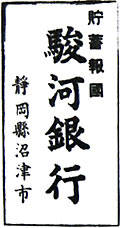 貯蓄報國
駿河銀行
靜岡縣沼津市